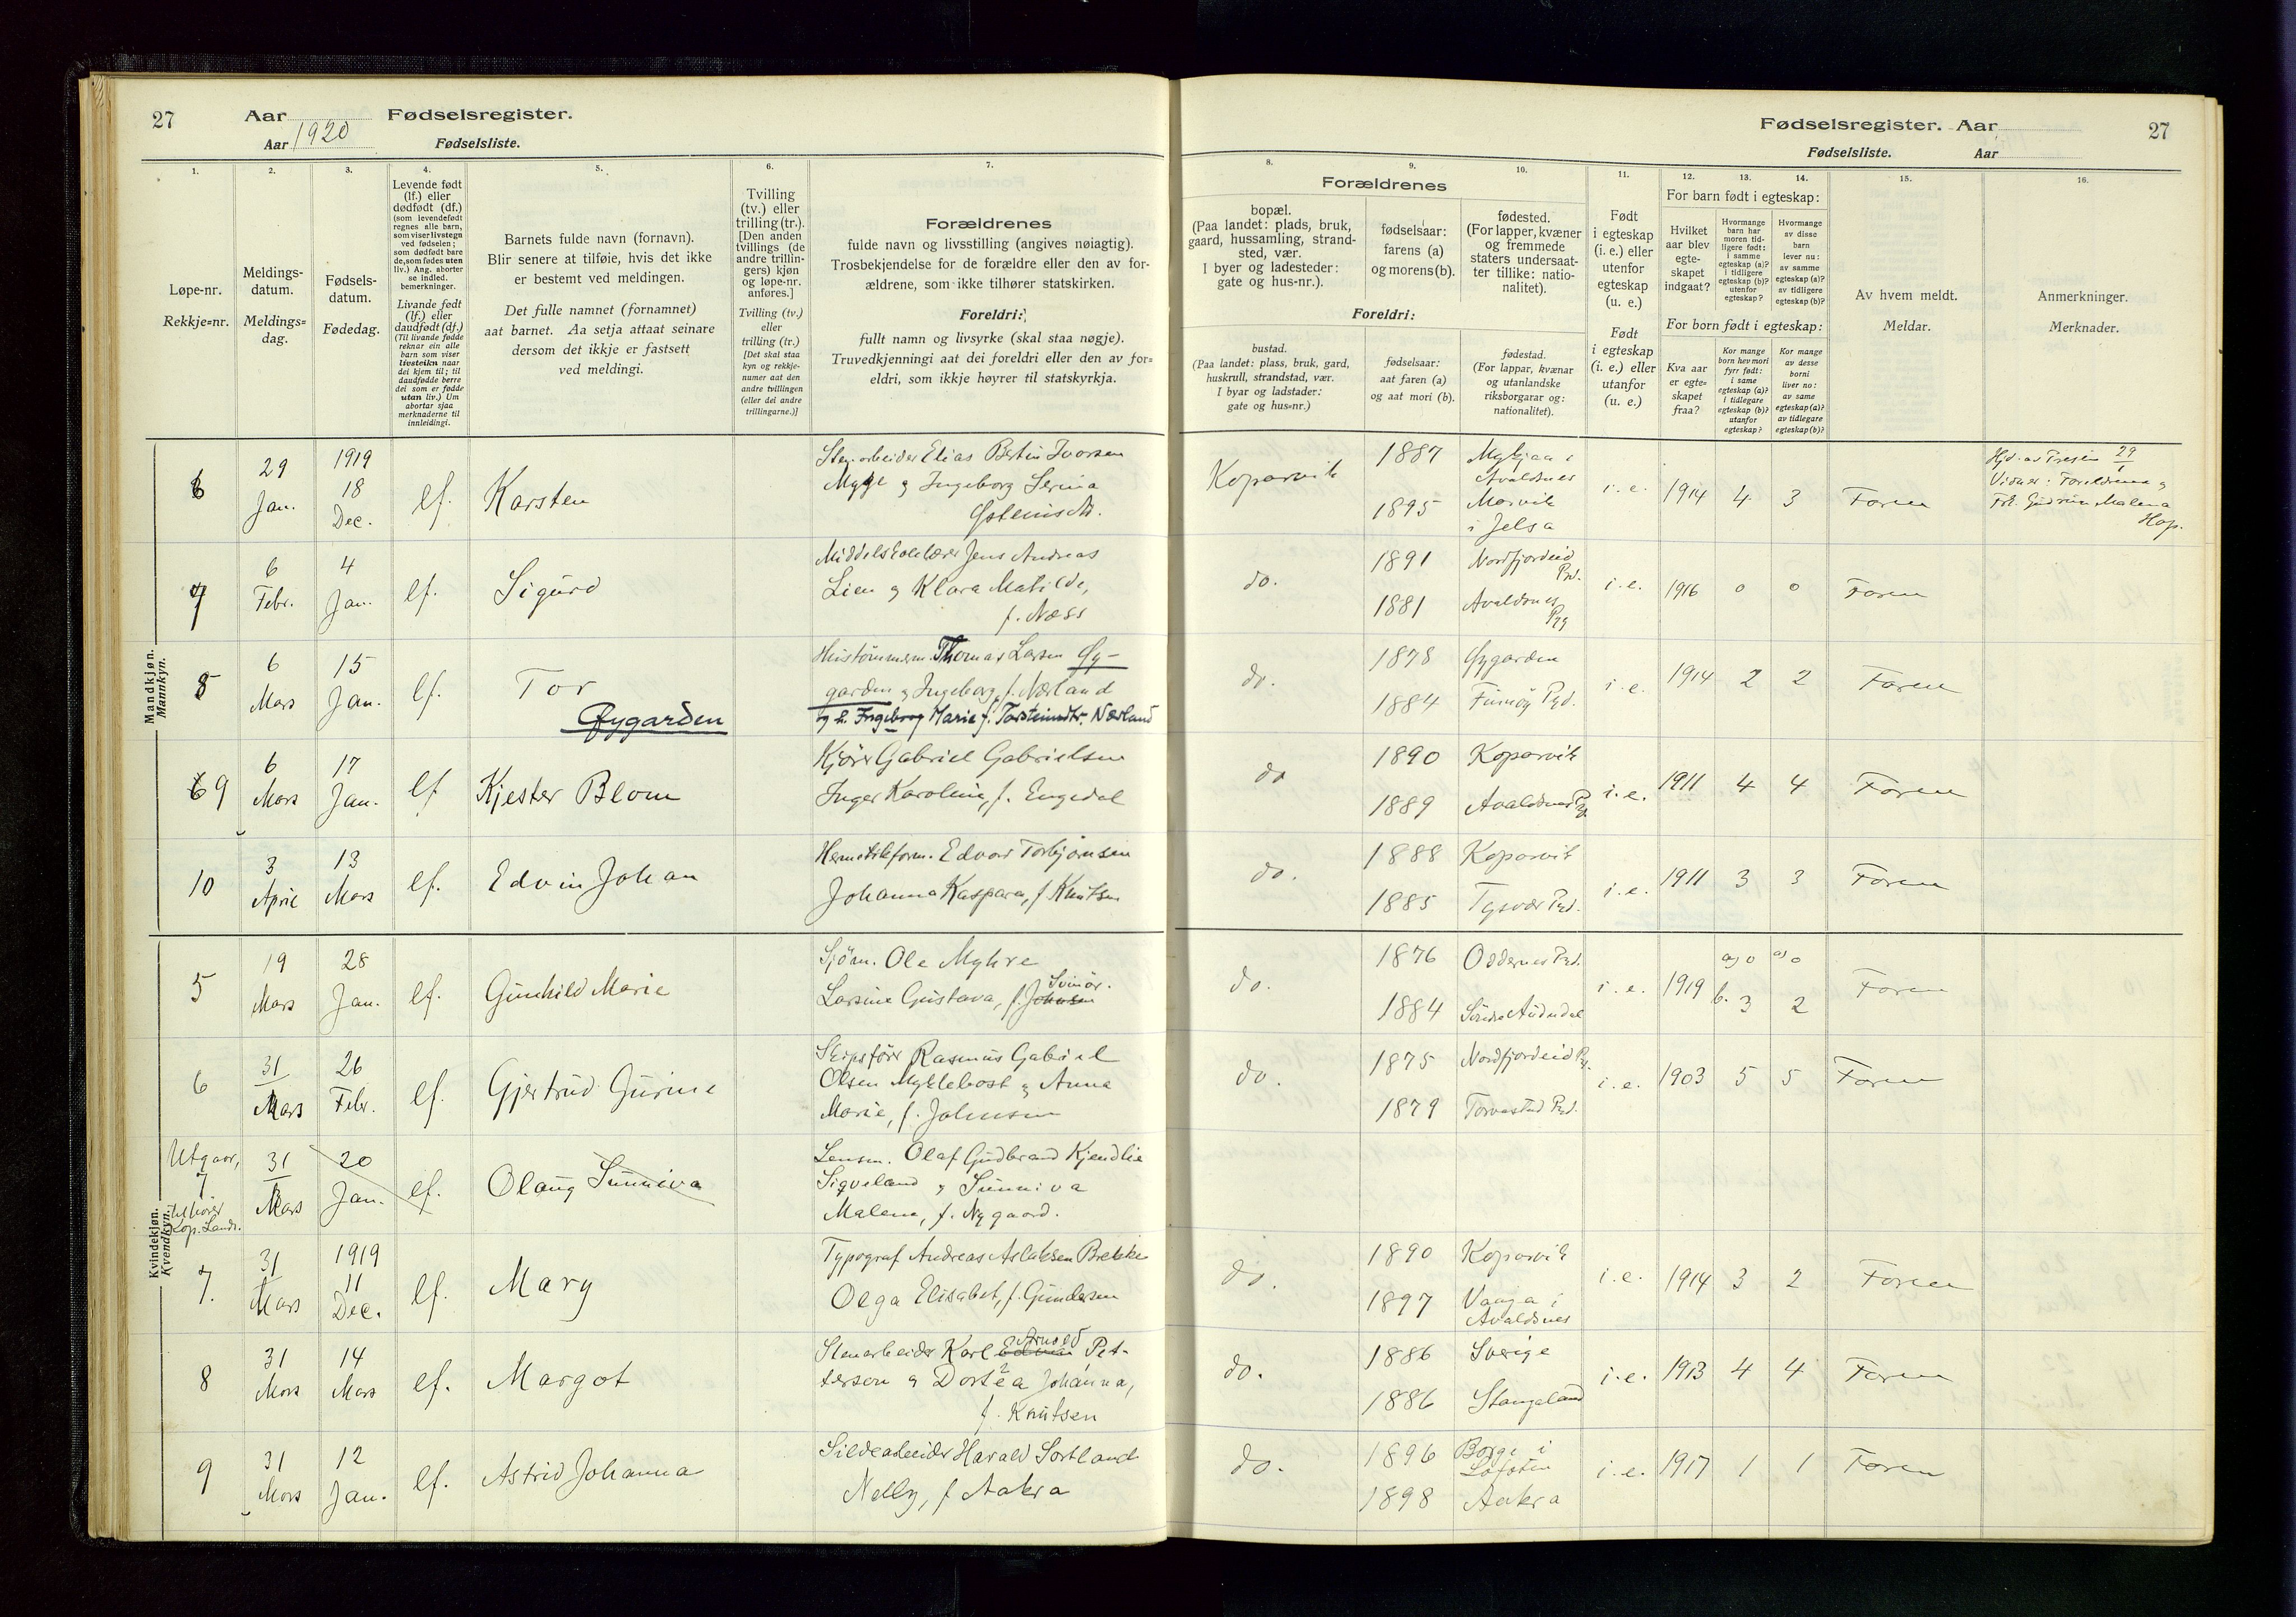 27
Aar
Fødselsregister.
Aar 1920
Fødselsliste.
1.
Løpe-nr.
Rekkje-nr.
2.
Meldings-
datum.
Meldings-
dag.
3.
Fødsels-
datum.
Fødedag.
4.
Levende født
(lf.) eller
dødfødt (df.)
(som levendefødt
regnes alle barn,
som viser livstegn
ved fødselen;
som dødfødt bare
de, som fødes uten
liv.) Ang. aborter
se indled.
bemerkninger.
Livande født
(lf.) eller
daudfødt (df.)
(Til livande fødde
reknar ein alle
barn som viser
livsteikn naar
dei kjem til; til
daudfødde berre
dei som er fødde
utan liv.) Um
abortar sjaa
merknaderne til
innleidingi.
5.
Barnets fulde navn (fornavn).
Blir senere at tilføie, hvis det ikke
er bestemt ved meldingen.
Det fulle namnet (fornamnet)
aat barnet. Aa setja attaat seinare
dersom det ikkje er fastsett
ved meldingi.
6.
Tvilling
(tv.) eller
trilling (tr.).
[Den anden
tvillings (de
andre trillin-
gers) kjøn
og løpe-nr.
anføres.]
Tvilling (tv.)
eller
trilling (tr.)
[Det skal staa
kyn og rekkje-
numer aat den
andre tvillingen
(eller dei andre
trillingarne.)]
7.
Forældrenes
fulde navn og livsstilling (angives nøiagtig).
Trosbekjendelse for de forældre eller den av for-
ældrene, som ikke tilhører statskirken.
Foreldri:
fullt namn og livsyrke (skal staa nøgje).
Truvedkjenningi aat dei foreldri eller den av for-
eldri, som ikkje høyrer til statskyrkja.
Fødselsregister. Aar
27
Fødselsliste. Aar
8.
Forældrenes
bopæl.
(Paa landet: plads, bruk,
gaard, hussamling, strand-
sted, vær.
I byer og ladesteder:
gate og hus-nr.).
Foreldri:
bustad.
(Paa landet: plass, bruk, gard,
huskrull, strandstad, vær.
I byar og ladstader:
gate og hus-nr.)
9.
fødselsaar:
farens (a)
og morens (b).
fødselsaar:
aat faren (a)
og aat mori (b).
10.
fødested.
(For lapper, kvæner
og fremmede
staters undersaat-
ter tillike: natio-
nalitet).
fødestad.
(For lappar, kvænar
og utanlandske
riksborgarar og:
nationalitet).
11.
Født
i egteskap
(i. e.) eller
utenfor
egteskap
(u. e.)
Født
i egteskap
(i. e.) eller
utanfor
(u. e.)
12. 13. 14.
For barn født i egteskap:
Hvilket
aar blev
egte-
skapet
indgaat?
Hvormange
barn har
moren tid-
ligere født:
i samme
egteskap (a)?
i tidligere
egteskap (b)?
utenfor
egteskap?
Hvormange
av disse
barn
lever nu:
av samme
egteskap (a)?
av tidligere
egteskap (b)?
For born født i egteskap:
Kva aar
er egte-
skapet
fraa?
Kor mange
born hev mori
fyrr født:
i same
egteskap (a)?
i tidlegare
egteskap (b)?
utanfor
egteskap?
Kor mange
av desse
borni
liver no:
av same
egteskap (a)?
av tidlegare
egteskap (b)?
15.
Av hvem meldt.
Meldar.
16.
Anmerkninger.
Merknader.
Mandkjøn.
Mannkyn.
6 29 Jan. 1919 18 Dec. lf. Karsten
Stenarbeider Elias Bertin Ivorsen
Myge og Ingeborg Serina
Koparvik 1887 1895
Avaldsnes
i Jelsa
i. e. 1914 4 3 Faren
Frk. Gudrun Malena
Hop.
7 6 Febr. 4 Jan. lf. Sigurd
Middelskolelærer Jens Andreas
Lien og Klara Matilde,
f. Næss
do. 1891 Nordfjordeid Pgd.
1881 Avaldsnes Pgd
i. e. 1916 0 0 Faren
8 6 Mars 15 Jan. lf. Tor
Øygarden
Hustømmerm. Thomas Larsen Øy-
garden og Ingeborg, f. Nærland
og h. Ingeborg Marie f. Torsteinsdtr. Nærland
do. 1878 Øygarden
1884 Finnøy Pgd.
i. e. 1914 2 2 Faren
9 6 Mars 17 Jan. lf Kjester Blom
Kjører Gabriel Gabrielsen
Inger Karoline, f. Engedal
do 1890 Koparvik
1889 Avaldsnes Pgd.
i. e. 1911 4 4 Faren
10 3 April 13 Mars lf. Edvin Johan
Hermetikform. Edvard Torbjørnsen
Johanna Kaspara, f. Knutsen
do. 1888 Koparvik
1885 Tysvær Pgd.
i. e. 1911 3 3 Faren
Kvindekjøn.
Kvendkyn.
5 19 Mars 28 Jan. lf. Gunhild Marie
Sjøm. Ole Myhre
Svinør.
Larsine Gustava, f. Johnsen
do. 1876 Oddernes Pgd.
1884 Søndre Audndal
i. e. 1919 a) 0 a) 0
b. 3 2 Faren
6 31 Mars 26 Febr. lf. Gjertrud Gurine
Skipsfører Rasmus Gabriel
Olsen Myklebost og Anna
Marie, f. Johnsen
do. 1875 Nordfjordeid Pgd.
1879 Torvastad Pgd.
i. e. 1903 5 5 Faren
Utgaar,
7
tilhører
Kop. Lands.
31 Mars 20 Jan. lf. Olaug Sunniva
Lensm. Olaf Gudbrand Kjendlie
Sigveland og Sunniva
Malena, f. Nygaard.
7. 31 Mars 1919 11 Dec. lf. Mary
Typograf Andreas Aslaksen Brekke
Olga Elisabet, f. Gundersen
do. 1890 Koparvik
1897 Vaaga i
Avaldsnes
i. e. 1914 3 2 Faren
8 31 Mars 14 Mars lf. Margot
Arnold
Stenarbeider Karl Edvin Pet-
terson og Dortea Johanna,
f. Knutsen
do. 1886 Sverige
1886 Stangeland
i. e. 1913 4 4 Faren
9 31 Mars 12 Jan. lf. Astrid Johanna
Sildearbeider Harald Sortland
Nelly, f Aakra
do. 1896 Borge i
Lofoten
1898 Aakra
i. e. 1917 1 1 Faren